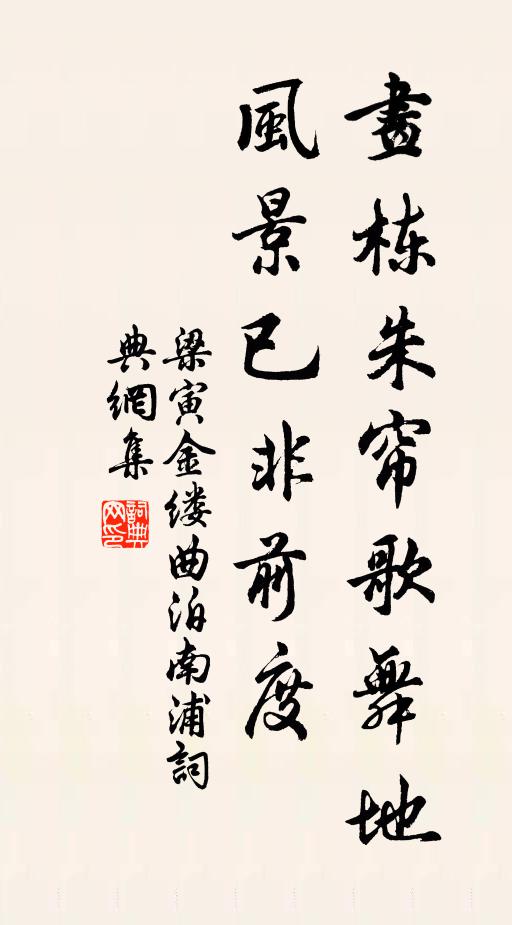 畫栋朱帘歌舞地
風景已非前度
梁寅金缕曲泊南浦詞
典網集
詞典
网印